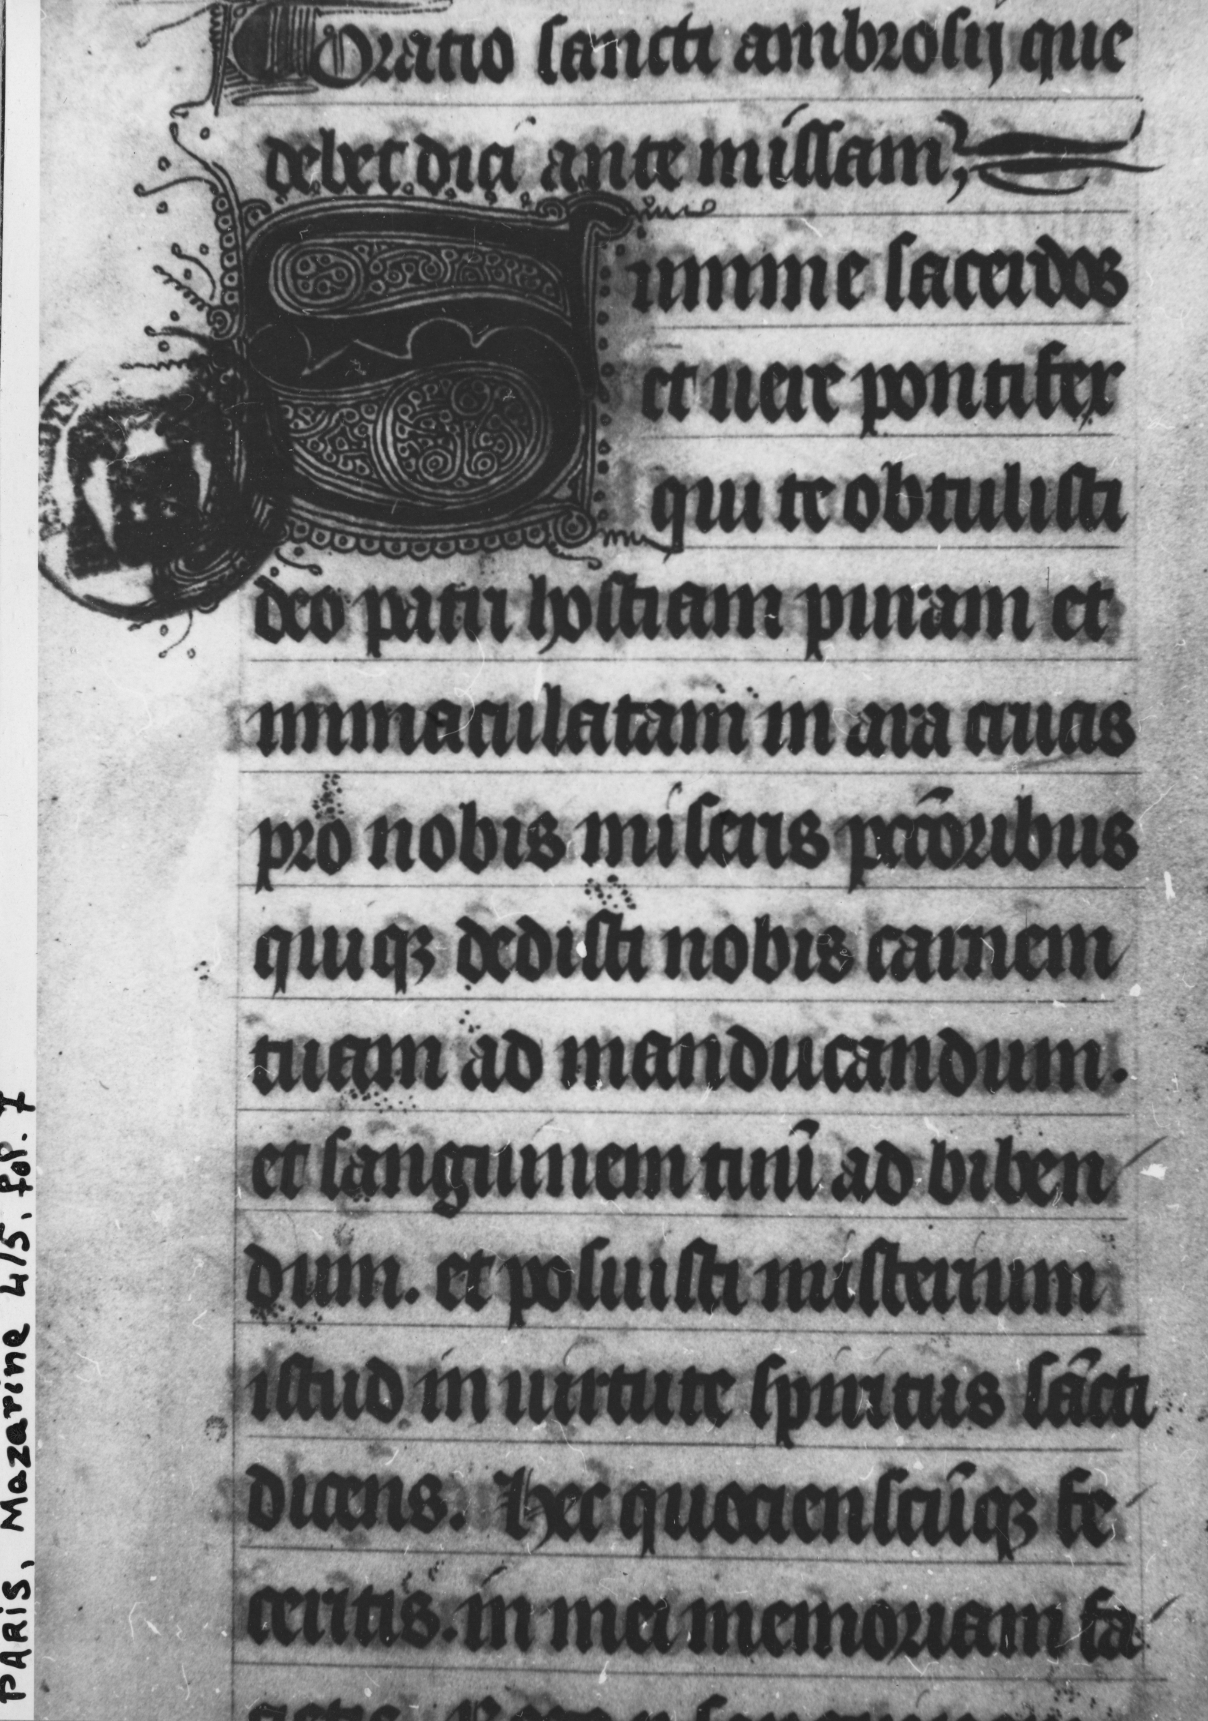 Oratio sancti ambrosij que
debet dici ante missam
Summe sacerdos
et uere pontifex
qui te obtulisti
deo patri hostiam puram et
immaculatam in ara crucis
pro nobis miseris pctõribus
quiqꝫ dedisti nobis carnem
tuam ad manducandum.
et sanguinem tuũ ad biben
dum. et posuisti misterium
istud in uirtute spiritus sãcti
dicens. Hec quociensciũqꝫ fe
ceritis. in mei memoriam fa
PARIS, Mazarine 415, fol. 7